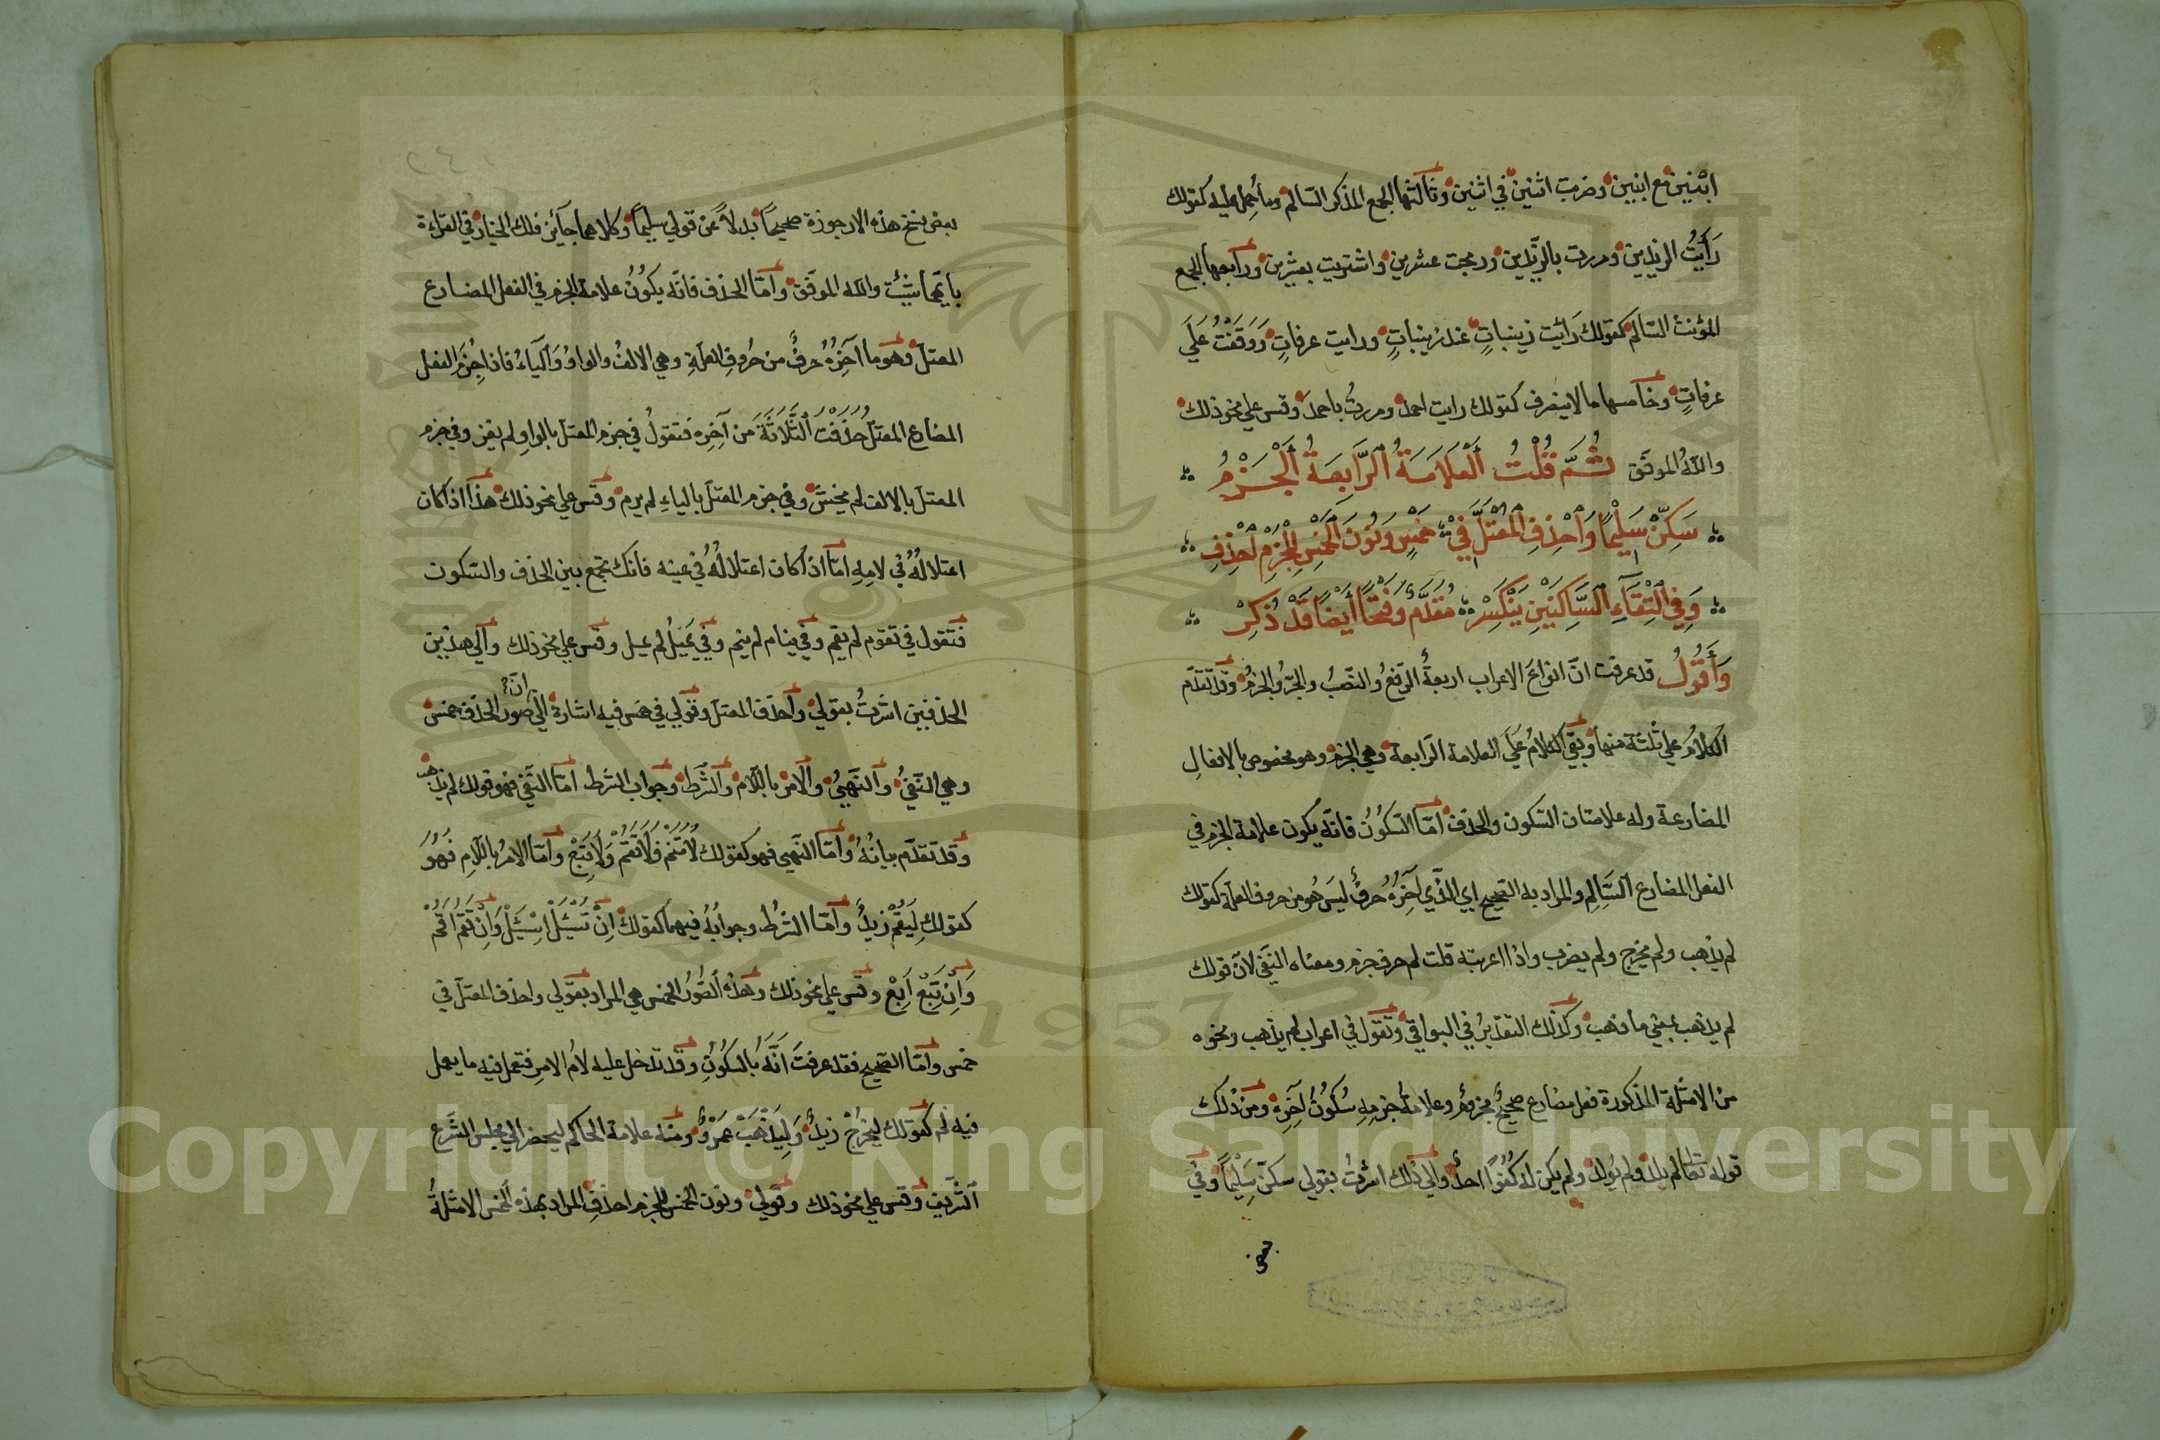 ابنين مع ابنين وضربت اثنين في اثنين وثالثها الجمع المذكر السالم وما حمل عليه كقولك
رَأيتُ الزيدين ومررت بالزّيدين وربحت عشرين واشتريت بعشرين ورابعها الجمع
المؤنث السالم كقولك رَأيت زينباتٍ عند زينباتٍ ورايت عرفاتٍ وَوَقَفْتُ عَلَي
عرفاتٍ وخامسها ما لا ينصرف كقولك رايت احمد ومررتُ باحمدَ وقس علي نحو ذلك
واللهُ الموفق ثُمَّ قُلْتُ اَلْعَلَامَةُ الرَّابِعَةُ اَلْجَزْمُ
سَكِّنْ سَلِيْمًا وَاحْذِفِ الْمُعْتَلَّ فِيْ خَمْسٍ وَنُوْنَ الْخَمْسِ لِلْجَزْمِ احْذِفِ
وَفِي الْتِقَاءِ السَّاكِنَيْنِ يَنْكَسِرْ مُقَدَّمٌ وَفَتْحًا أَيْضًا قَدْ ذُكِرْ
وَأَقُولُ قد عرفت انّ انواعَ الاعراب اربعةٌ الرّفعُ والنّصبُ والجرُّ والجزمُ وقد تقدّم
الكلامُ علي ثلثة منها وبقي الكلامُ عَلَي العلامة الرّابعة وهي الجزم وهو مخصوص بالافعالِ
المضارعة وله علامتان السّكون والحذف امّا السّكُونُ فانّه يكون علامة الجزم في
الفعل المضارع السَّالمِ والمراد به الصّحيح اي الذّي آخِرُهُ حرفٌ ليسَ هُو من حروف العلّة كقولك
لم يذهب ولم يخرج ولم يضرب واذا اعربته قلت لم حرف جزم ومعناه النّفي لانّ قولك
لم يذهب بمعني ما ذهب وكذلك التقديرُ في البواقي وتقول في اعراب لم يذهب ونحوه
من الامثلة المذكورة فعل مضارع صحيحٌ مجزومٌ وعلامةُ جزمِهِ سُكُونُ آخِرِهِ ومن ذلك
قوله تعالي لم يلد ولم يولد ولم يكن له كُفُوًا احدٌ والي ذلك اشرتُ بقولي سكّن سَلِيْماً وفي
بعض
بعض نسخ هذه الارجوزة صحيحاً بدلاً عن قولي سليماً وكلاهما جآئز فلك الخيار في القراءة
بايّهما شئت والله الموفّق وامّا الحذف فانّه يكُونُ علامة الجزم في الفعل المضارع
المعتلّ وهو ما آخِرُهُ حرفٌ من حُروفِ العلّةِ وهي الالفُ والواوُ وَالياءُ فاذا جُزِمَ الفعلُ
المضارع المعتلّ حُذِفَتْ الثَّلَاثَةُ من آخِره فتقولُ في جزم المعتلّ بالواوِ لم يغز وفي جزم
المعتلّ بالالف لم يخشَ وفي جزم المعتلّ بالياءِ لم يرم وقس علي نحو ذلك هذا اذا كان
اعتلالُهُ في لامِهِ امّا اذا كان اعتلالُهُ في عينه فانك تجمع بين الحذف والسّكون
فتقول في تقوم لم يقم وفي ينام لم ينم وفي يَمِيلُ لم يمل وقس علي نحو ذلك والي هذين
الحذفين اشرتُ بقولي وأحذف المعتلّ وقولي في خمس فيه اشارة الي انّ صور الحذف خمس
وهي النّفيُ والنّهيُ والأمر باللّام والشّرط وجواب الشّرط امّا النّفي فهو قولك لم يذهب
وقد تقدّم بيانُهُ وامّا النّهي فهو كقولك لَا تَنَمْ وَلَا تَقُمْ وَلَا تَبِعْ وأمّا الامرُ باللّامِ فَهُوَ
كقولكِ لِيَقُمْ زيدٌ وأمّا الشّرطُ وجوابُهُ فيهما كقولك اِنْ تَسْئَلْ اُسْئَلْ وَاِنْ تَقُمْ اَقُمْ
وَاِنْ تَبِعْ اَبِعْ وقس علي نحو ذلك وهذه الصُّورُ الخمس هي المراد بقولي واحذف المعتلّ في
خمس وامّا الصّحيح فقد عرفتَ اَنَّهُ بالسكُونِ وقد تدخل عليه لامُ الامرِ فتعمل فيه ما يعمل
فيه لم كقولك ليخرُجْ زيدٌ وَلِيَذْهَبْ عَمْرٌو ومنه علامة الحاكم ليحضر الي مجلس الشّرع
الشّريف وقس علي نحو ذلك وقولي ونون الخمس للجزم احذفِ المراد بهذه الخمس الامثلةُ
1957
Copyright © King Saud University